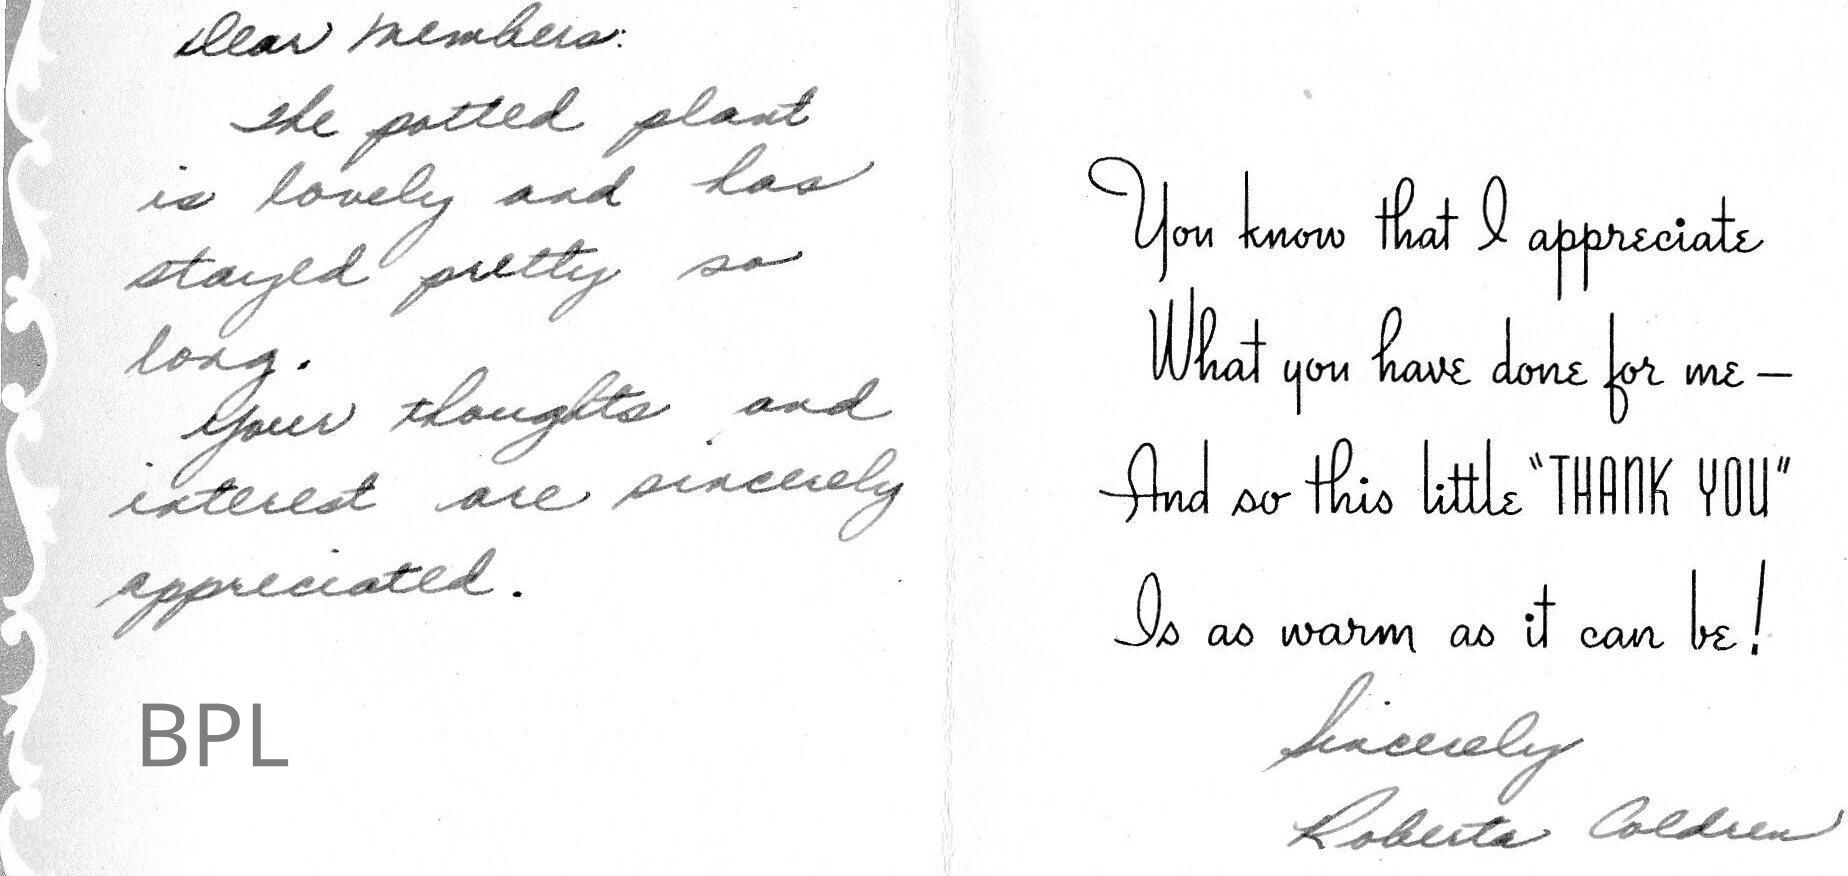 Dear Members:
The potted plant
is lovely and has
stayed pretty so
long.
Your thoughts and
interest are sincerely
appreciated.
BPL
You know that I appreciate
What you have done for me —
And so this little "THANK YOU"
Is as warm as it can be!
Sincerely
Roberta Coldren